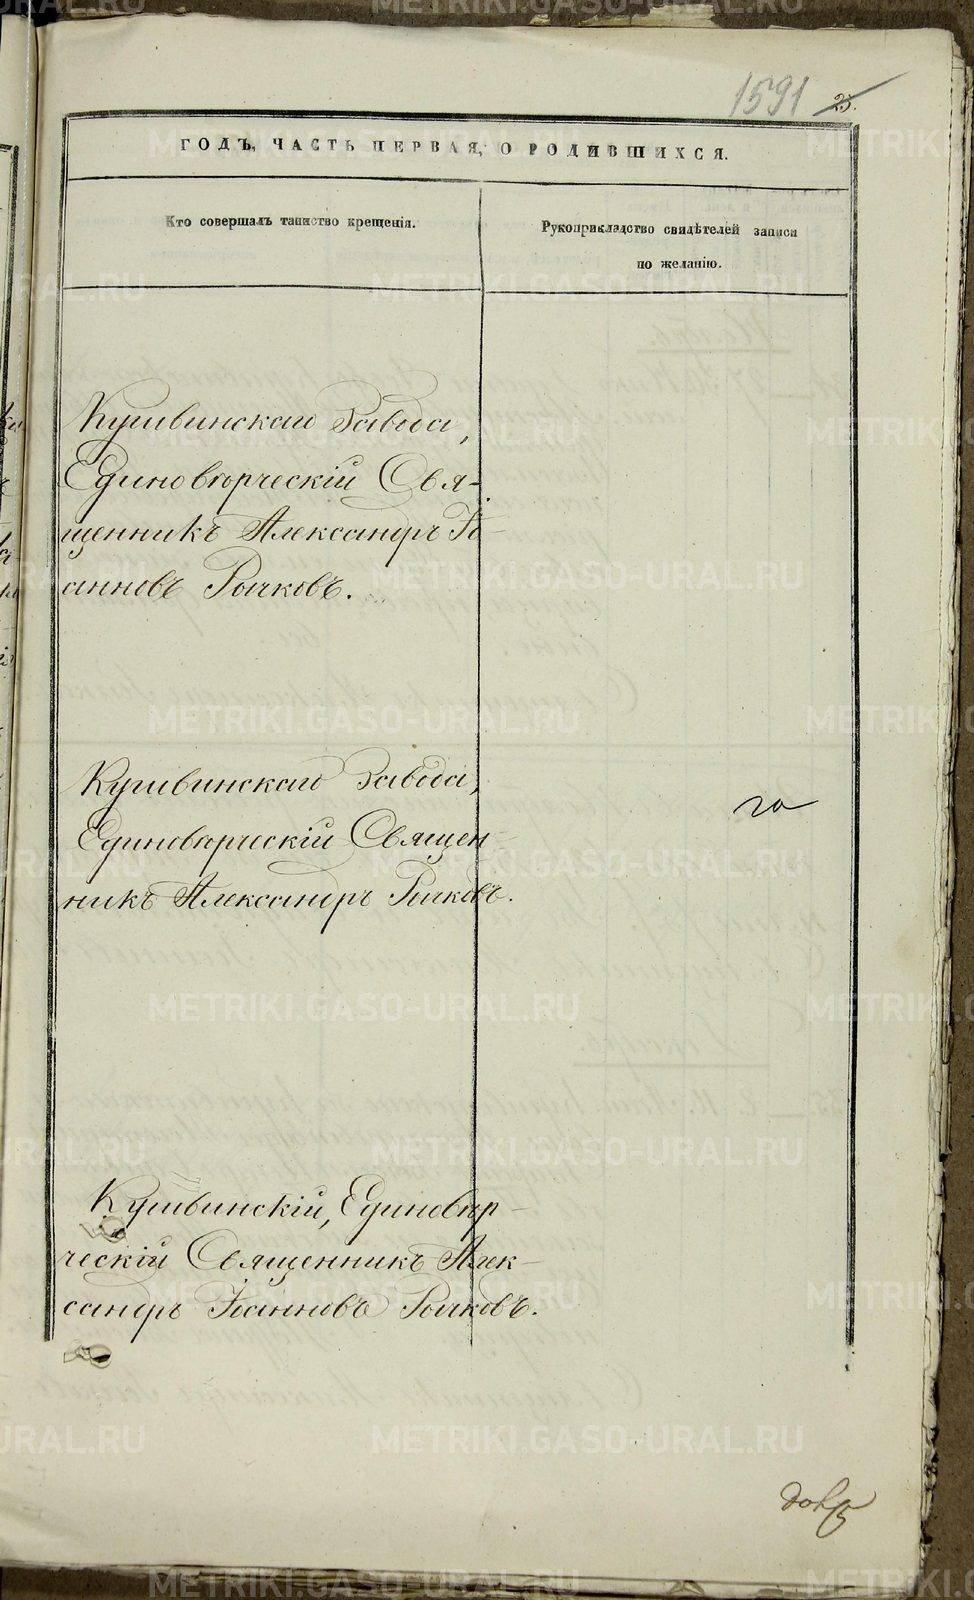 1591 25.
ГОДЪ, ЧАСТЬ ПЕРВАЯ, О РОДИВШИХСЯ.
Кто совершалъ таинство крещенія.
Рукоприкладство свидѣтелей записи
по желанію.
Кушвинскаго Завода,
Единовѣрческій Свя-
щенникъ Александръ Іо-
анновъ Рычковъ.
Кушвинскаго Завода,
Единовѣрческій Священ-
никъ Александръ Рычковъ.
го
Кушвинскій, Единовѣр-
ческій Священникъ Алек-
сандръ Іоанновъ Рычковъ.
METRIKI.GASO-URAL.RU